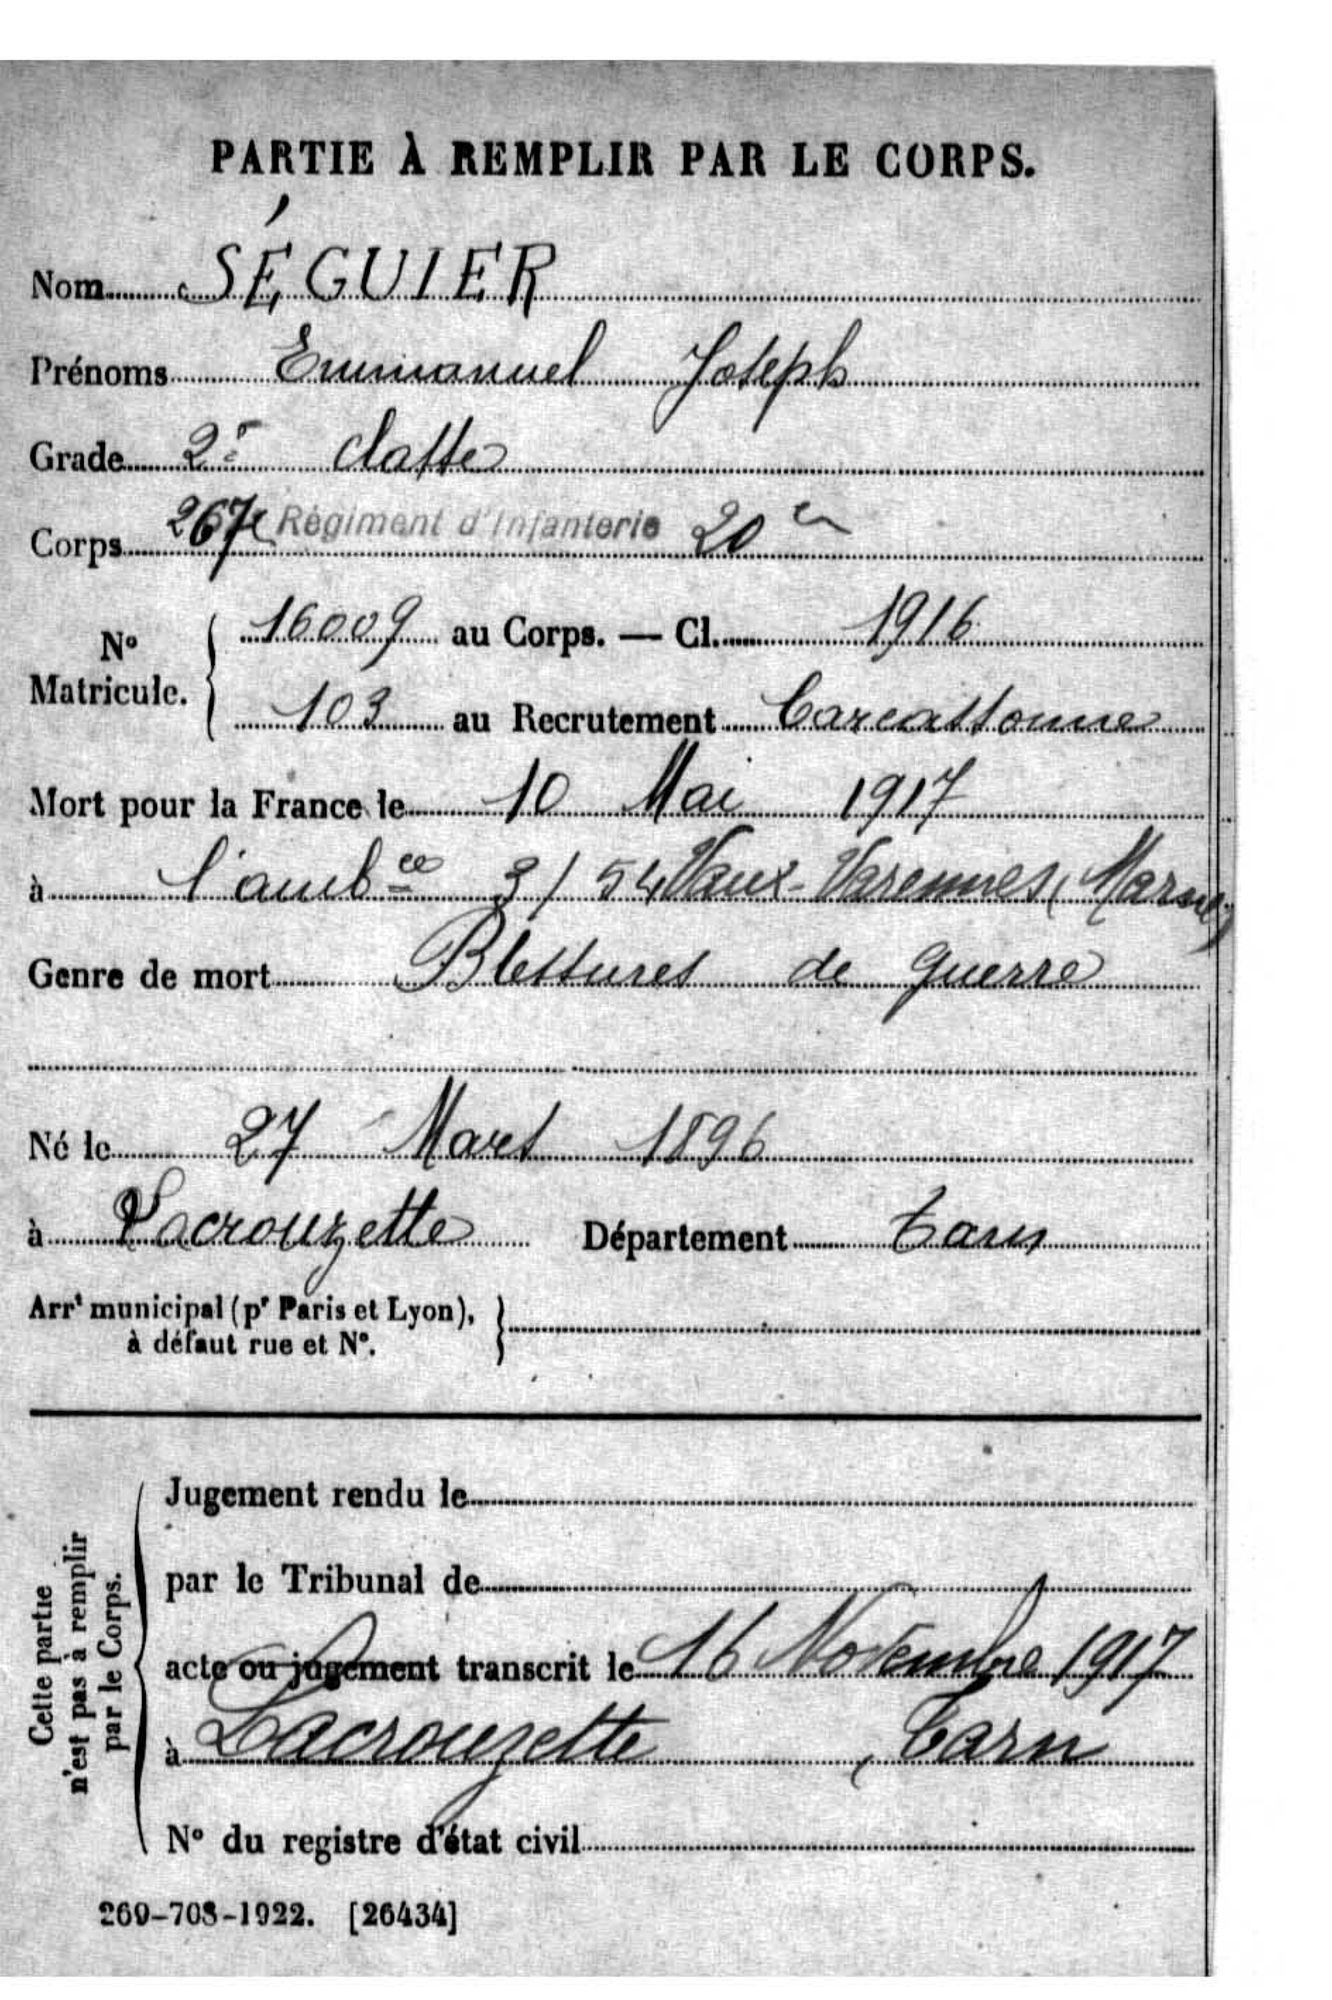 PARTIE À REMPLIR PAR LE CORPS.
Nom SÉGUIER
Prénoms Emmanuel Joseph
Grade 2e classe
Corps 267e Régiment d'Infanterie 20e
N° Matricule. { 16009 au Corps. — Cl. 1916
103 au Recrutement Carcassonne
Mort pour la France le 10 Mai 1917
à l'ambce 3/54 Vaux-Varennes (Marne)
Genre de mort Blessures de guerre
Né le 27 Mars 1896
à Lacrouzette Département Tarn
Arrt municipal (pr Paris et Lyon),
à défaut rue et N°.
Cette partie
n'est pas à remplir
par le Corps.
Jugement rendu le
par le Tribunal de
acte ou jugement transcrit le 16 Novembre 1917
à Lacrouzette, Tarn
N° du registre d'état civil
269-708-1922. [26434]